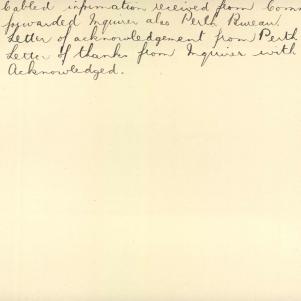 Cabled information received from Comm
forwarded Inquirer also Perth Bureau.
Letter of acknowledgement from Perth
Letter of thanks from Inquirer with
Acknowledged.